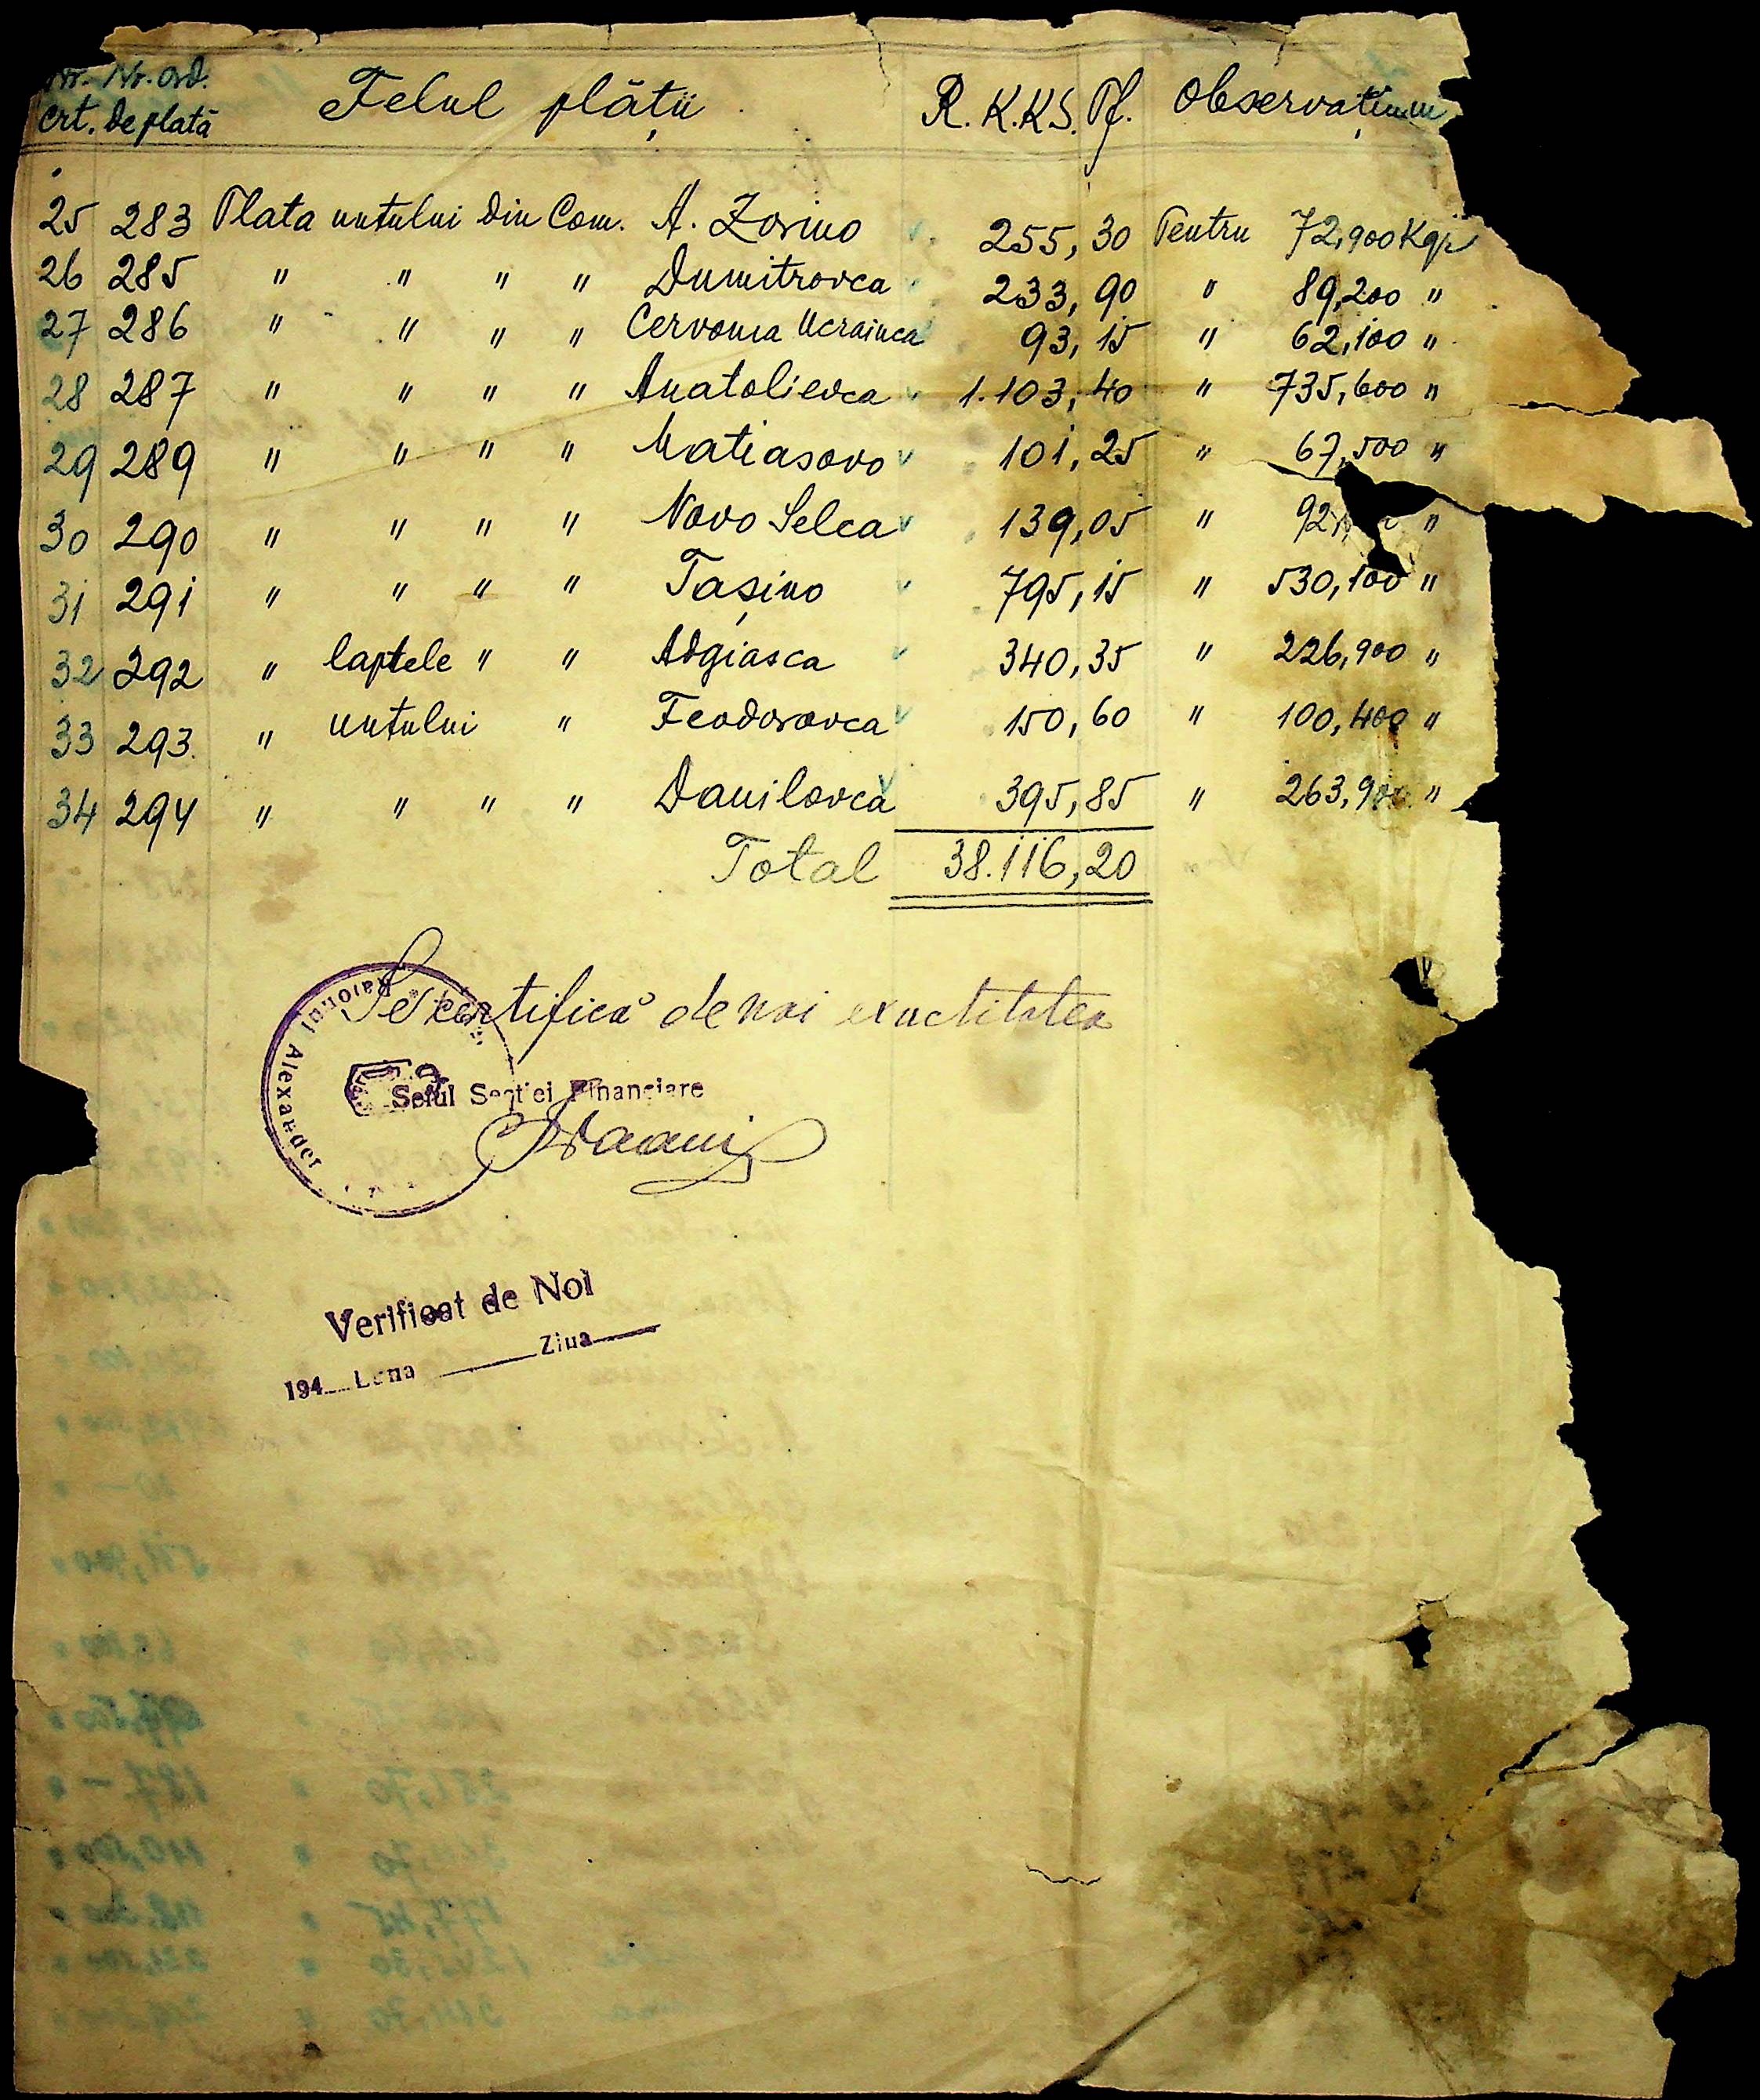 Nr. Nr. ord. Felul plății R.K.K.S. Pf. Observațiuni
crt. de plată
25 283 Plata untului din Com. A. Zorino 255,30 Pentru 72,900 Kgr
26 285 " " " " Dumitrovca 233,90 " 89,200 "
27 286 " " " " Cervona Ucrainca 93,15 " 62,100 "
28 287 " " " " Anatolievca 1.103,40 " 735,600 "
29 289 " " " " Matiasovo 101,25 " 67,500 "
30 290 " " " " Novo Selca 139,05 " 92, "
31 291 " " " " Tașino 795,15 " 530,100 "
32 292 " laptele " " Adgiasca 340,35 " 226,900 "
33 293. " untului " Feodorovca 150,60 " 100,400 "
34 294 " " " " Danilovca 395,85 " 263,900 "
Total 38.116,20
Se certifică de noi exactitatea
Raionul Alexander
Seful Secției Financiare
Verificat de Noi
194 Luna Ziua